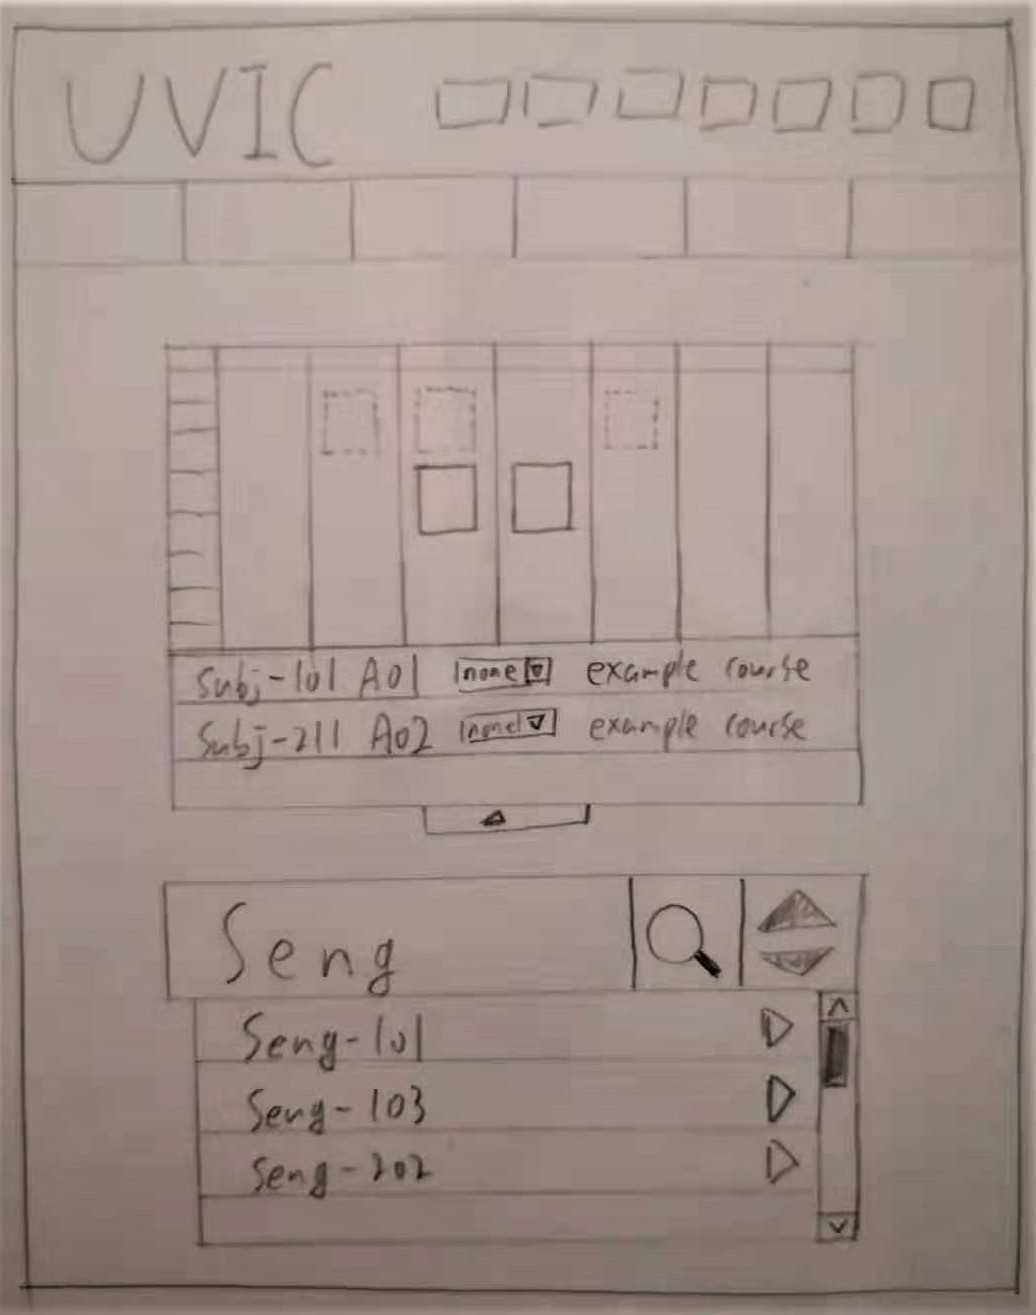 UVIC
Subj-101 A01 none example course
Subj-211 A02 none example course
Seng
Seng-101
Seng-103
Seng-202